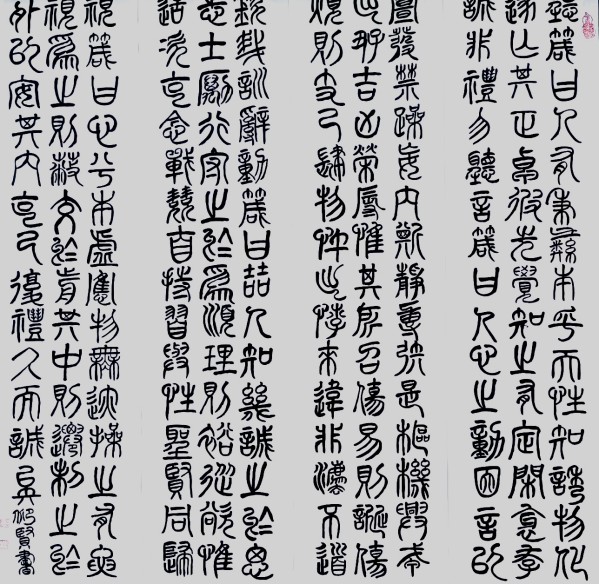 聽箴曰人有秉彝本乎天性知誘物化
遂亡其正卓彼先覺知止有定閑邪存
誠非禮勿聽言箴曰人心之動因言以
宣發禁躁妄內斯靜專矧是樞機興戎
出好吉凶榮辱惟其所召傷易則誕傷
煩則支己肆物忤出悖來違非法不道
欽哉訓辭動箴曰哲人知幾誠之於思
志士勵行守之於為順理則裕從欲惟
造次克念戰兢自持習與性聖賢同歸
視箴曰心兮本虛應物無迹操之有要
視為之則蔽交於前其中則遷制之於
外以安其內克己復禮久而誠 吳賢書